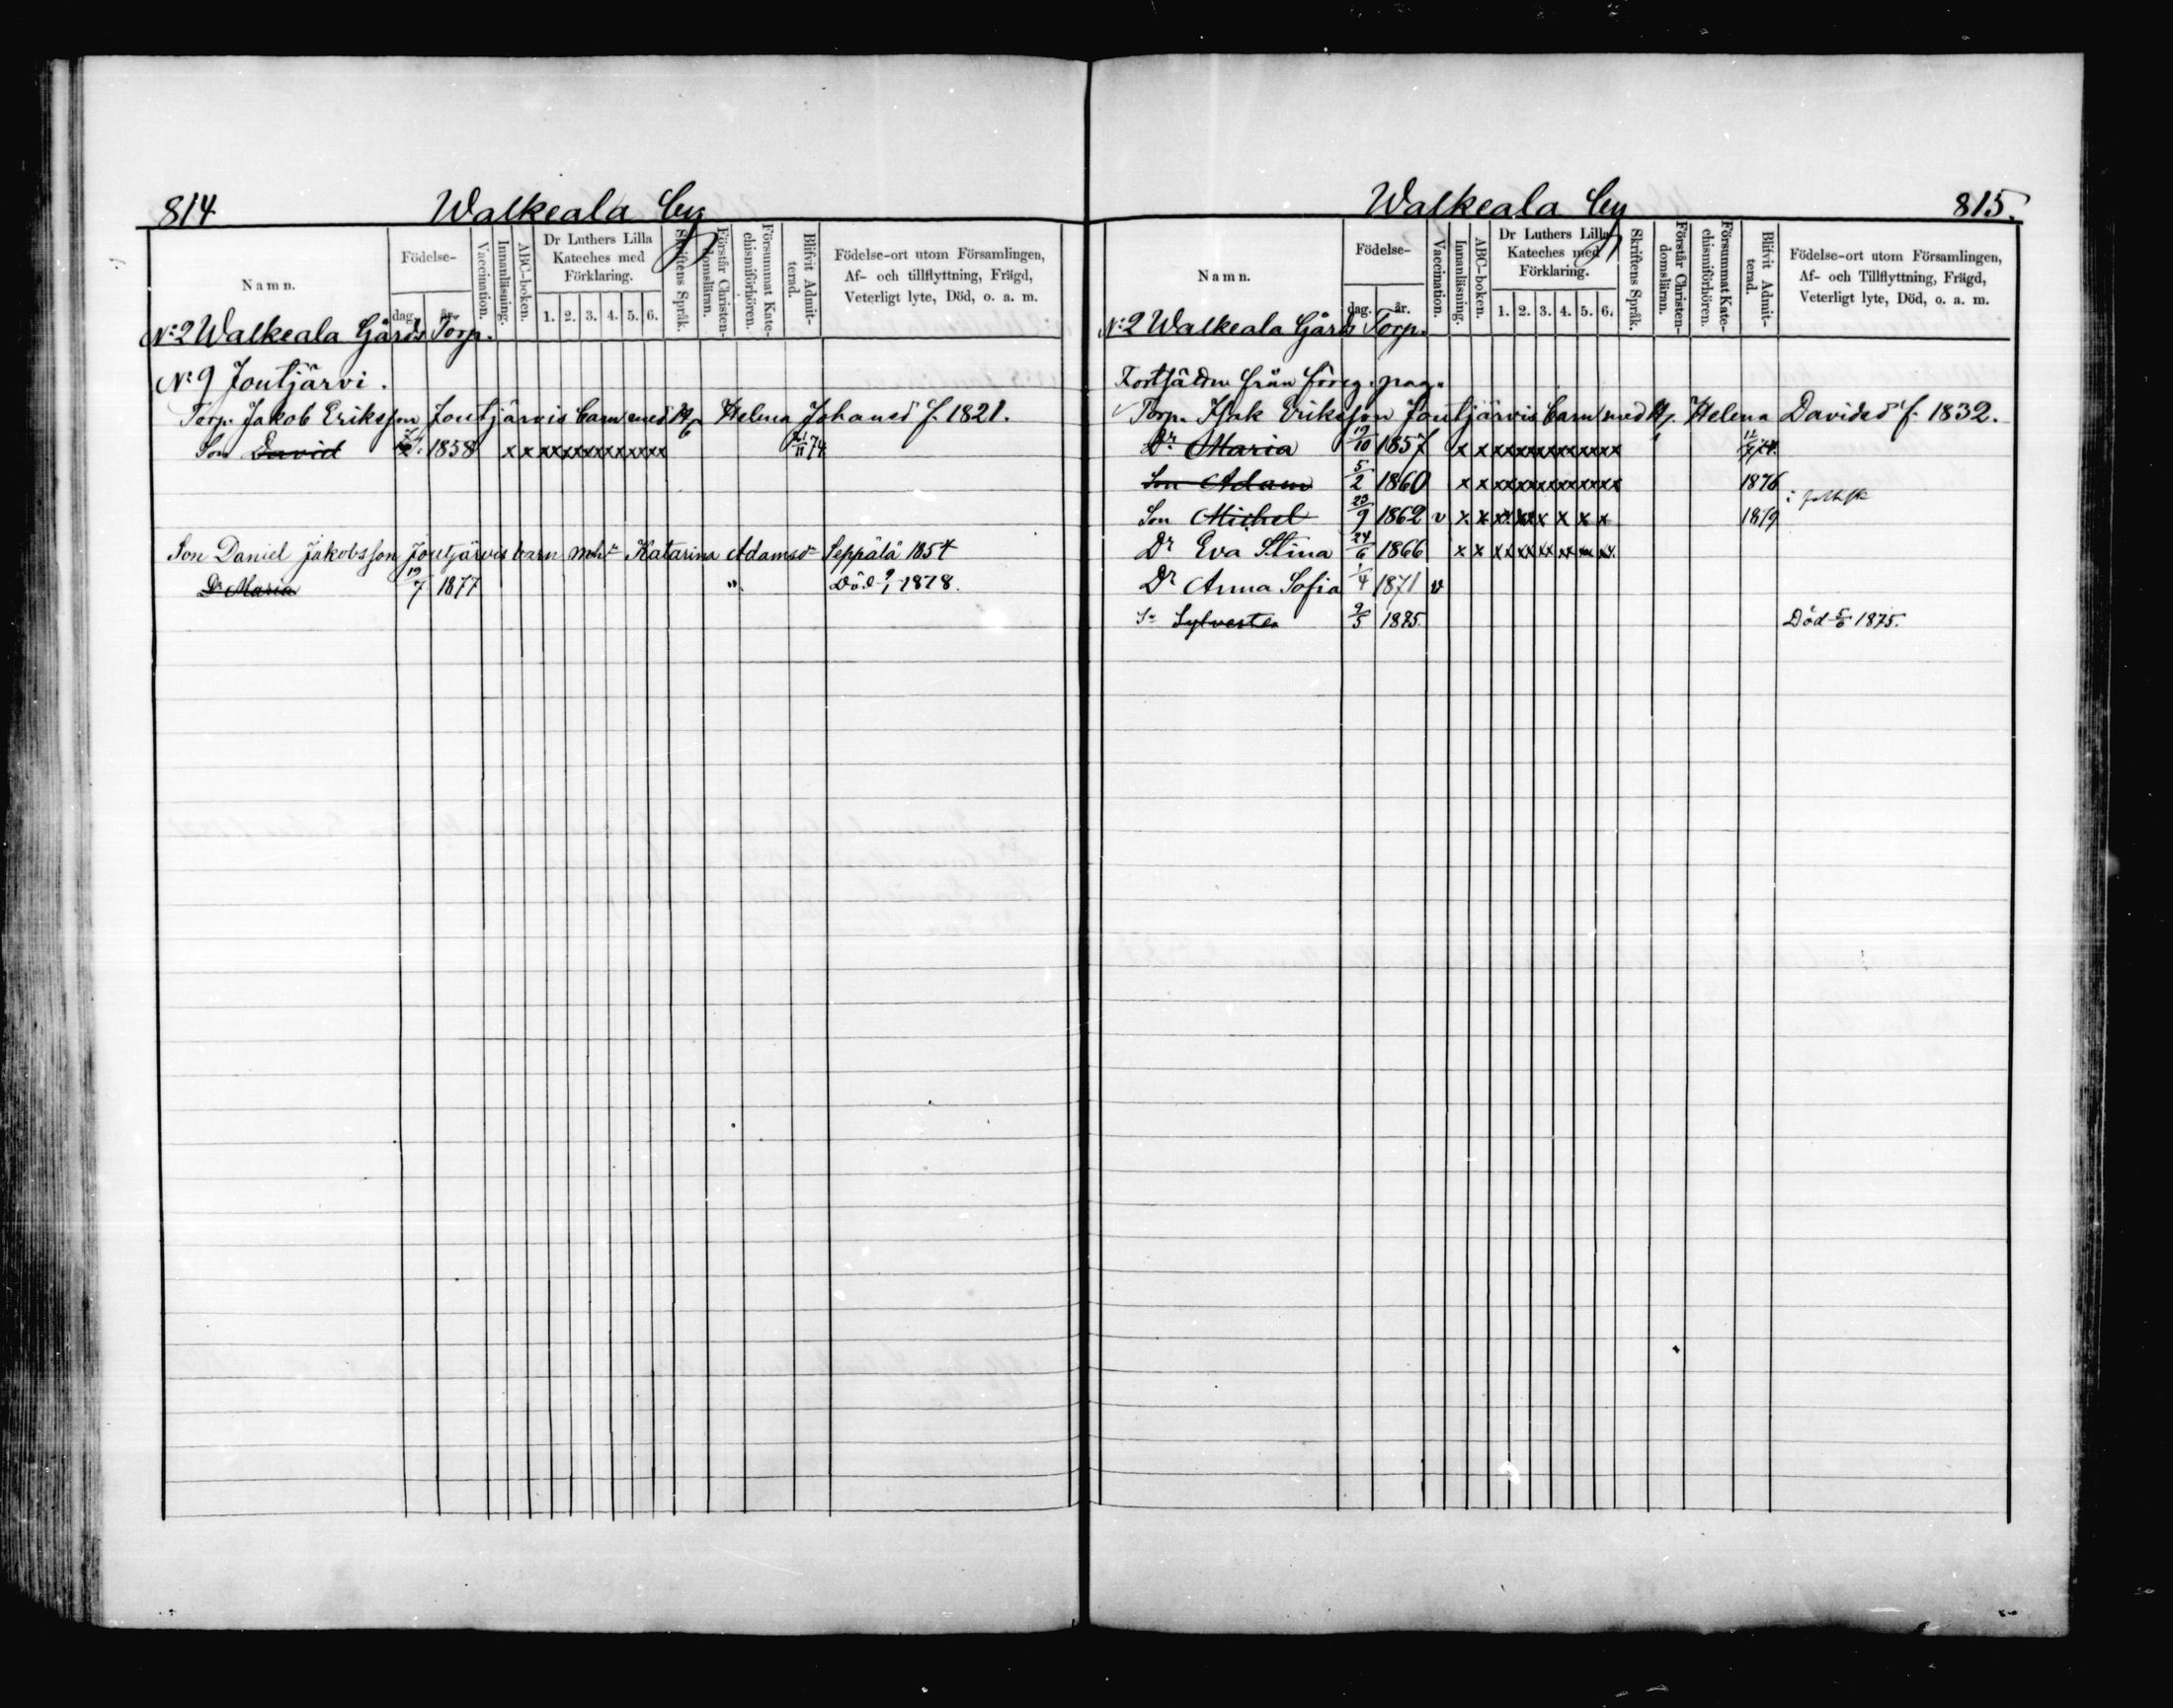 814 Walkeala by
Namn. Födelse- dag. år. Vaccination. Innanläsning. ABC-boken. Dr Luthers Lilla Kateches med Förklaring. 1. 2. 3. 4. 5. 6. Skriftens Språk. Förstår Christen-domsläran. Försummat Kate-chismiförhören. Blifvit Admit-terad. Födelse-ort utom Församlingen, Af- och tillflyttning, Frägd, Veterligt lyte, Död, o. a. m.
N:2 Walkeala Gårds Torp.
N:9 Joutjärvi.
Torp. Jakob Eriksson Joutjärvis barn med H. Helena Johansd f. 1821.
Son David 1858 x x xx xx xx xx xx xx 74
Son Daniel Jakobsson Joutjärvis barn m. h. Katarina Adamsdr Seppälä 1854
Dr Maria 19/7 1877 " Död 9/1 1878.
Walkeala by 815.
Namn. Födelse- dag. år. Vaccination. Innanläsning. ABC-boken. Dr Luthers Lilla Kateches med Förklaring. 1. 2. 3. 4. 5. 6. Skriftens Språk. Förstår Christen-domsläran. Försummat Kate-chismiförhören. Blifvit Admit-terad. Födelse-ort utom Församlingen, Af- och Tillflyttning, Frägd, Veterligt lyte, Död, o. a. m.
N:2 Walkeala Gårds Torp.
Fortsättn från föreg. pag.
Torp. Isak Eriksson Joutjärvis barn med H. Helena Davidsd f. 1832.
Dr Maria 19/10 1857 x x xx xx xx xx xx xx 74.
Son Adam 5/2 1860 x x xx xx xx xx xx xx 1876
Son Michel 23/9 1862 v x x xx xx x x x x 1879
Dr Eva Stina 24/6 1866 x x xx xx xx xx xx
Dr Anna Sofia 1/4 1871 v
Sn Sylvester 9/5 1875. Död 5/6 1875.